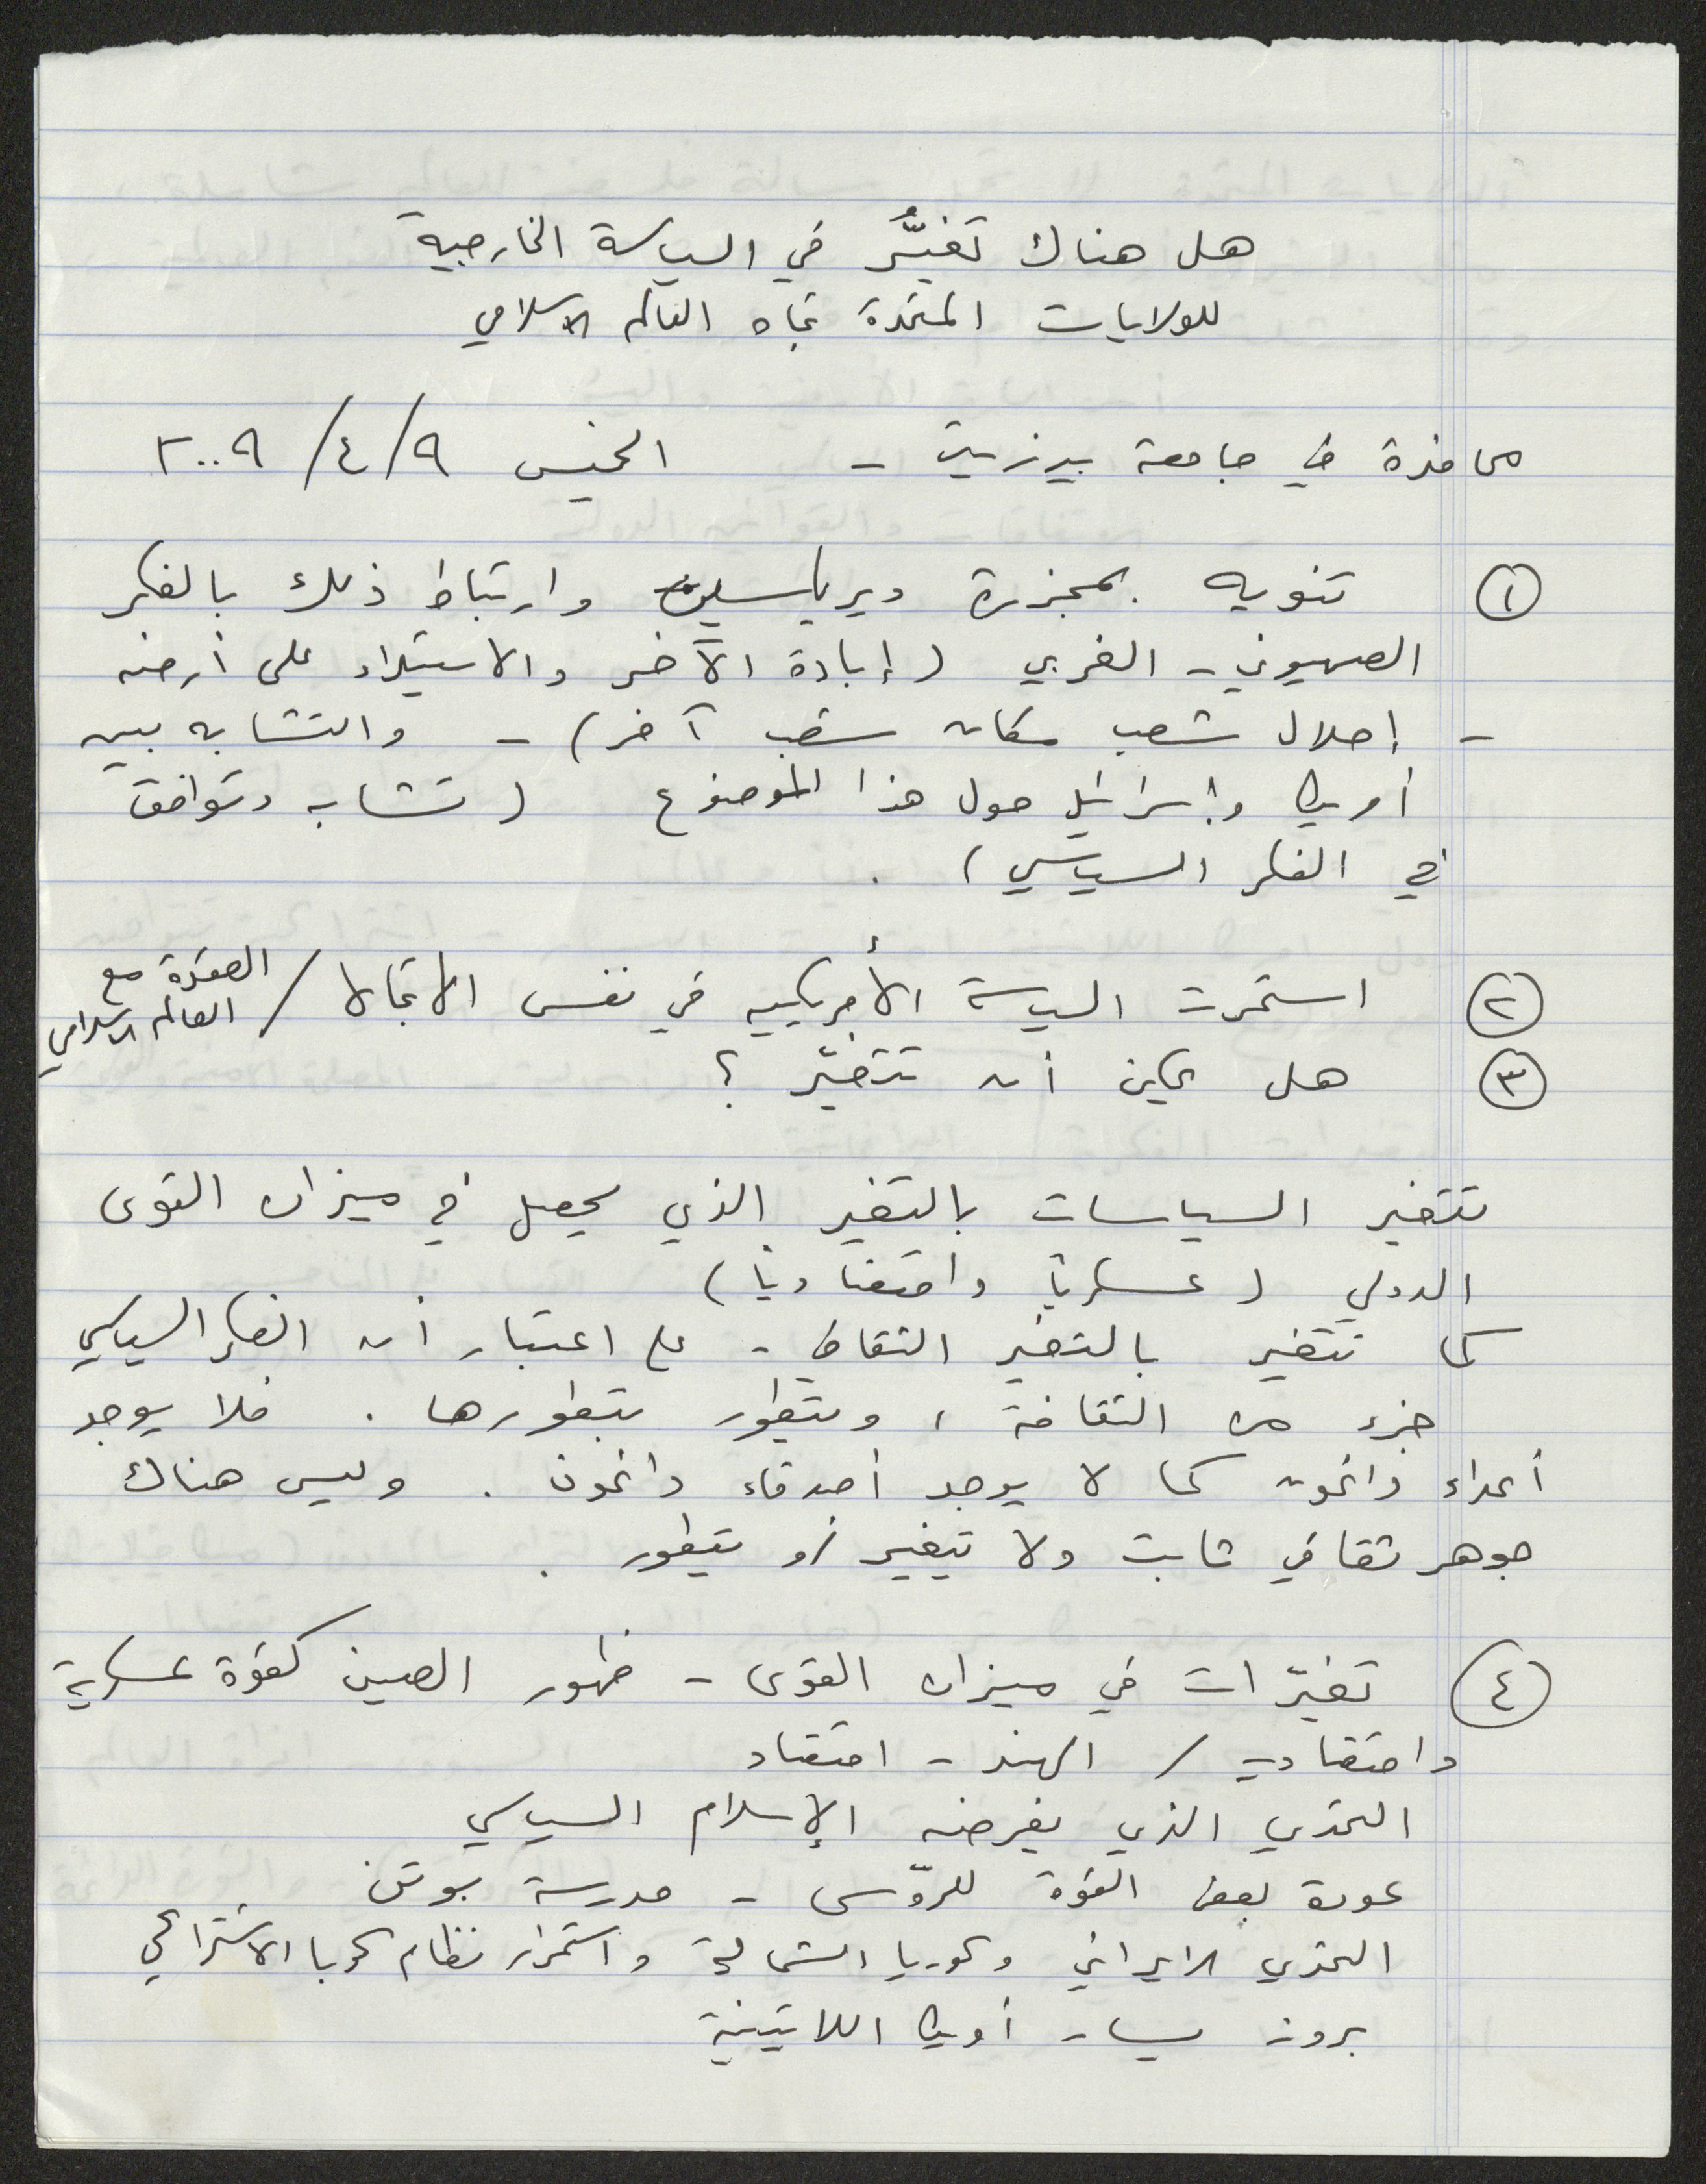 هل هناك تغيُّر في السياسة الخارجية
للولايات المتحدة تجاه العالم الاسلامي
محاضرة في جامعة بيرزيت - الخميس ٩/٤/٢٠٠٩
١ تنويه بمجزرة ديرياسين وارتباط ذلك بالفكر
الصهيوني - الغربي (إبادة الآخر والاستيلاء على أرضه
- إحلال شعب مكان شعب آخر) - والتشابه بين
أمريكا وإسرائيل حول هذا الموضوع (تشابه وتوافق
في الفكر السياسي) .
٢ استمرت السياسة الأمريكية في نفس الاتجاه / العقدة مع
العالم الاسلامي
٣ هل يمكن أن تتغيّر ؟
تتغير السياسات بالتغير الذي يحصل في ميزان القوى
الدولي (عسكرياً واقتصادياً)
كما تتغير بالتغير الثقافي - على اعتبار أن الفكر السياسي
جزء من الثقافة ، ويتطور بتطورها . فلا يوجد
أعداء دائمون كما لا يوجد أصدقاء دائمون . وليس هناك
جوهر ثقافي ثابت ولا يتغير أو يتطور .
٤ تغيّرات في ميزان القوى - ظهور الصين كقوة عسكرية
واقتصادية / الهند - اقتصاد
التحدي الذي يفرضه الإسلام السياسي
عودة بعض القوة للرّوس - مدرسة بوتن
التحدي الايراني وكوريا الشمالية واستمرار نظام كوبا الاشتراكي
بروز يسار أمريكا اللاتينية